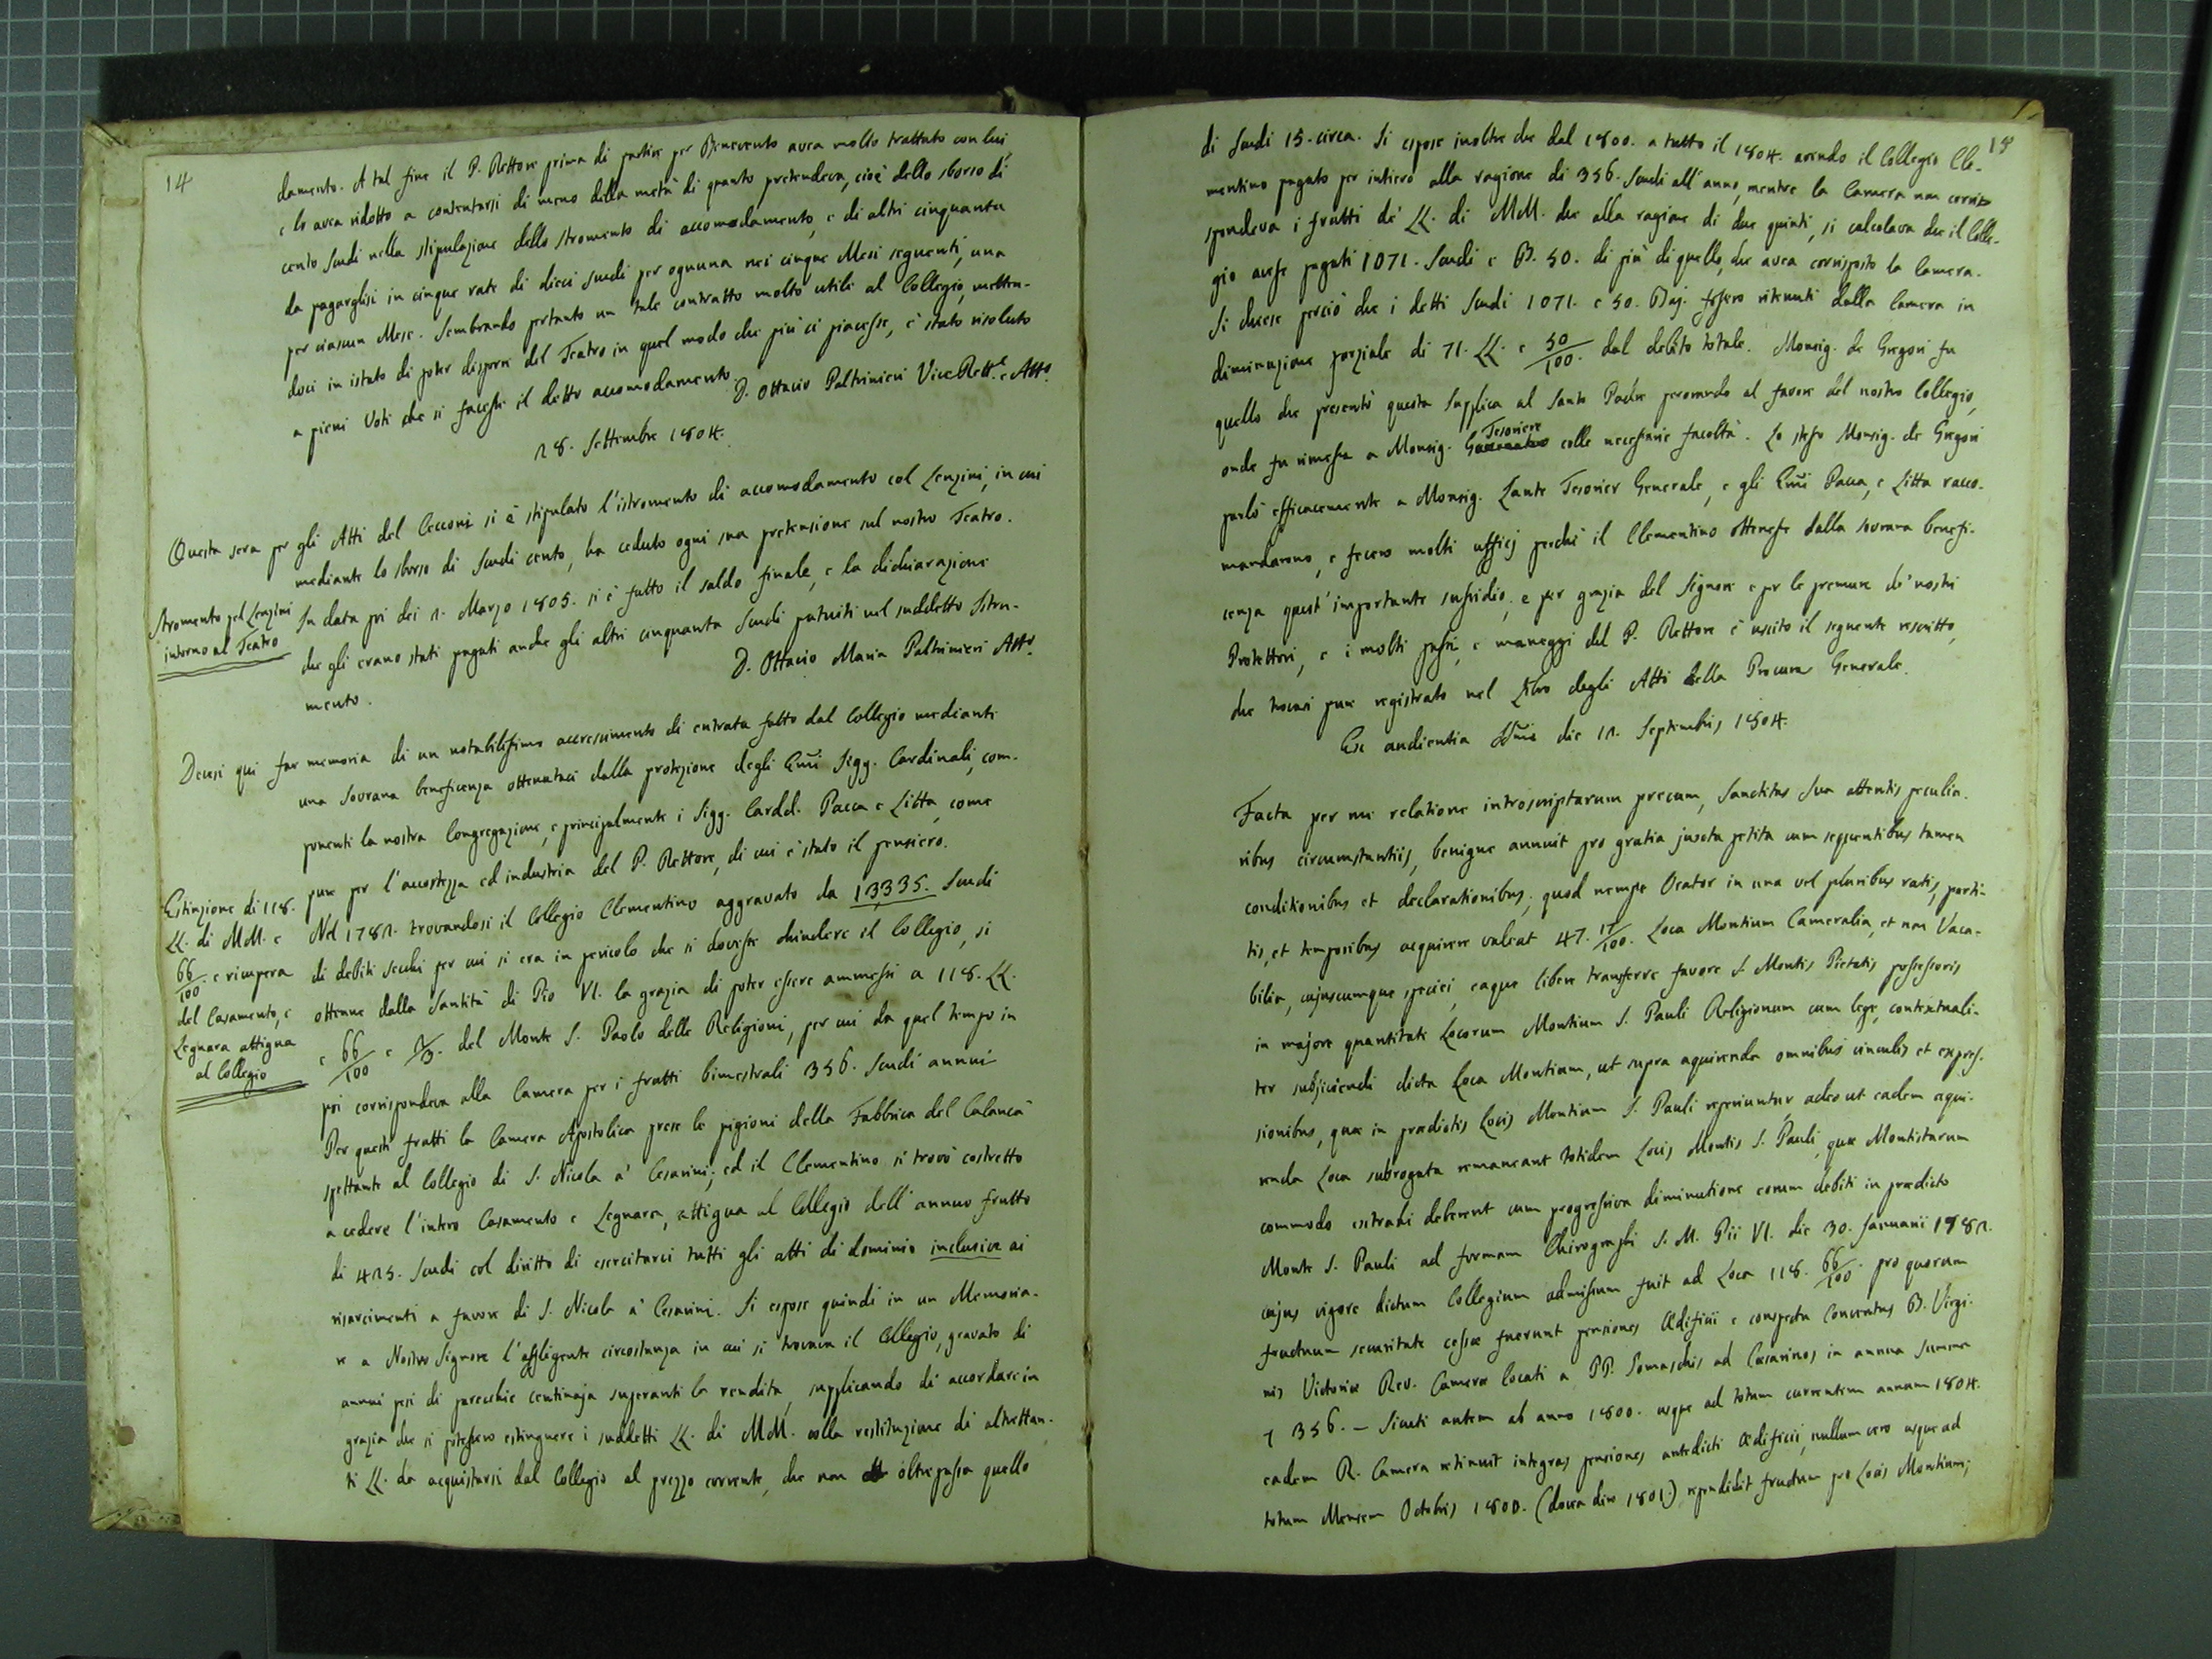 14
damento. A tal fine il P. Rettore prima di partire per Benevento avea molto trattato con lui,
e lo avea ridotto a contentarsi di meno della metà di quanto pretendeva, cioè dello sborso di
cento Scudi nella stipulazione dello stromento di accomodamento, e di altri cinquanta
da pagarglisi in cinque rate di dieci Scudi per ognuna nei cinque Mesi seguenti, una
per ciascun Mese. Sembrando pertanto un tale contratto molto utile al Collegio, metten-
doci in istato di poter disporre del Teatro in quel modo che più ci piacesse, è stato risoluto
a pieni Voti che si facesse il detto accomodamento.
D. Ottavio Paltrinieri Vice Rett.e e Att.o
28. Settembre 1804.
Questa sera per gli Atti del Cecconi si è stipulato l'istromento di accomodamento col Lenzini, in cui
mediante lo sborso di Scudi cento, ha ceduto ogni sua pretensione sul nostro Teatro.
Stromento pel Lenzini
intorno al Teatro
In data poi dei 2. Marzo 1805. si è fatto il saldo finale, e la dichiarazione
che gli erano stati pagati anche gli altri cinquanta Scudi pattuiti nel suddetto Istru-
mento.
D. Ottavio Maria Paltrinieri Att.o
Devesi qui far memoria di un notabilissimo accrescimento di entrata fatto dal Collegio mediante
una Sovrana beneficenza ottenutaci dalla protezione degli Emi Sigg. Cardinali, com-
ponenti la nostra Congregazione, e principalmente i Sigg. Cardd. Pacca e Litta, come
pure per l'accortezza ed industria del P. Rettore, di cui è stato il pensiero.
Estinzione di 118.
LL. di MM. e
66/100. e ricupera
del Casamento, e
Legnara attigua
al Collegio
Nel 1782. trovandosi il Collegio Clementino aggravato da 13335. Scudi
di debiti secchi per cui si era in pericolo che si dovesse chiudere il Collegio, si
ottenne dalla Santità di Pio VI. la grazia di poter essere ammessi a 118. LL.
e 66/100 e 2/3. del Monte S. Paolo delle Religioni, per cui da quel tempo in
poi corrispondeva alla Camera per i frutti bimestrali 356. Scudi annui
Per questi frutti la Camera Apostolica prese le pigioni della Fabbrica del Calancà
spettante al Collegio di S. Nicola a' Cesarini; ed il Clementino si trovò costretto
a cedere l'intero Casamento e Legnara, attigua al Collegio dell'annuo frutto
di 425. Scudi col diritto di esercitarci tutti gli atti di dominio inclusive ai
risarcimenti a favore di S. Nicola a' Cesarini. Si espose quindi in un Memoria-
le a Nostro Signore l'affligente circostanza in cui si trovava il Collegio, gravato di
annui pesi di parecchie centinaja superanti la rendita, supplicando di accordare in
grazia che si potessero estinguere i suddetti LL. di MM. colla restituzione di altrettan-
ti LL. da acquistarsi dal Collegio al prezzo corrente, che non oltrepassa quello
15
di Scudi 15. circa. Si espose inoltre che dal 1800. a tutto il 1804. avendo il Collegio Cle-
mentino pagato per intiero alla ragione di 356. Scudi all'anno, mentre la Camera non corris-
pondeva i frutti de' LL. di MM. che alla ragione di due quinti, si calcolava che il Colle-
gio avesse pagati 1071. Scudi e B. 50. di più di quello, che avea corrisposto la Camera.
Si chiese perciò che i detti Scudi 1071. e 50. Baj. fossero ritenuti dalla Camera in
diminuzione parziale di 71. LL. e 50/100. dal debito totale. Monsig. de Gregori fu
quello che presentò questa Supplica al Santo Padre perorando al favore del nostro Collegio,
onde fu rimessa a Monsig. Tesoriere colle necessarie facoltà. Lo stesso Monsig. de Gregori
parlò efficacemente a Monsig. Lante Tesorier Generale, e gli Emi Pacca, e Litta racco-
mandarono, e fecero molti ufficj perchè il Clementino ottenesse dalla sovrana benefi-
cenza quest'importante sussidio, e per grazia del Signore e per le premure de' nostri
Protettori, e i molti passi, e maneggi del P. Rettore è uscito il seguente rescritto,
che trovasi pure registrato nel Libro degli Atti della Procura Generale.
Ex audientia SSmi die 12. Septembris 1804.
Facta per me relatione introscriptarum precum, Sanctitas Sua attentis peculia-
ribus circumstantiis, benigne annuit pro gratia juxta petita cum sequentibus tamen
conditionibus et declarationibus; quod nempe Orator in una vel pluribus ratis, parti-
tis, et temporibus acquirere valeat 47. 17/100. Loca Montium Cameralia, et non Vaca-
bilia, cujuscumque speciei, eaque libere transferre favore S. Montis Pietatis possessoris
in majore quantitate Locorum Montium S. Pauli Religionum cum lege, contextuali-
ter subjiciendi dicta Loca Montium, ut supra aquirenda omnibus vinculis et expres-
sionibus, quae in praedictis Locis Montium S. Pauli reperiuntur, adeo ut eadem aqui-
renda Loca subrogata remaneant totidem Locis Montis S. Pauli, quae Montistarum
commodo extrahi deberent cum progressiva diminutione eorum debiti in praedicto
Monte S. Pauli ad formam Chirographi S. M. Pii VI. die 30. Januarii 1782.
cujus vigore dictum Collegium admissum fuit ad Loca 118. 66/100. pro quorum
fructuum securitate cessae fuerunt pensiones Aedificii e conspectu Conventus B. Virgi-
nis Victoriae Rev. Camerae locati a PP. Somaschis ad Caesarinos in annua summa
356. — Sicuti autem ab anno 1800. usque ad totum currentem annum 1804.
eadem R. Camera retinuit integras pensiones antedicti Aedificii, nullum vero usque ad
totum Mensem Octobris 1800. (dovea dire 1801.) rependidit fructum pro Locis Montium;